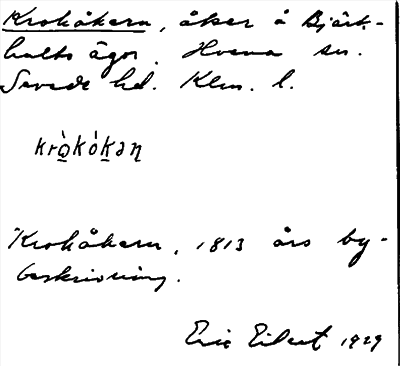 Krokåkern, åker å Björk-
hults ägor. Hvena sn.
Sevede hd. Klm. l.
krò̠kók̠əɳ
Krokåkern, 1813 års by-
beskrivning.
Eric Eilert 1929